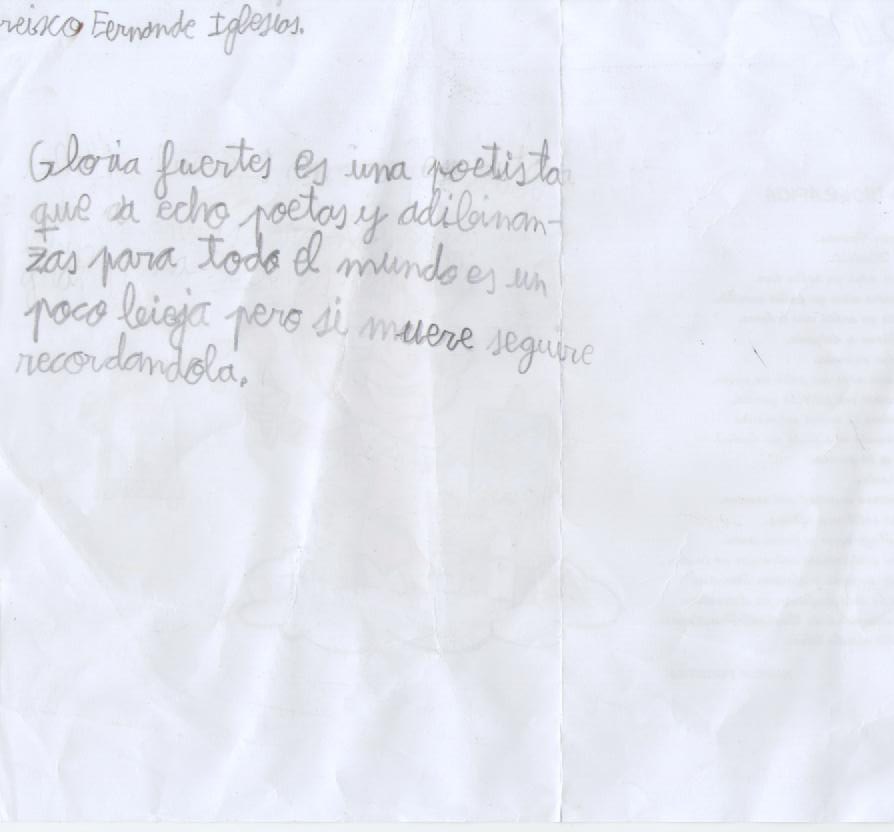 reisco Fernande Iglesias.
Gloria fuertes es una poetista
que a echo poetas y adibinan-
zas para todo el mundo es un
poco bieja pero si muere seguire
recordandola.